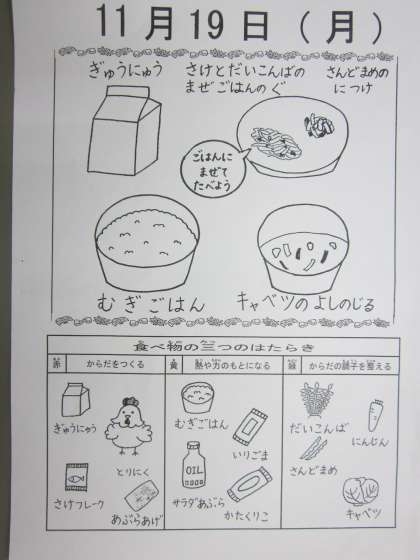 11月19日(月)
ぎゅうにゅう
さけとだいこんばの
まぜごはんのぐ
さんどまめの
につけ
ごはんに
まぜて
たべよう
むぎごはん
キャベツのよしのじる
食べ物の三つのはたらき
赤 からだをつくる
黄 熱や力のもとになる
緑 からだの調子を整える
ぎゅうにゅう
とりにく
さけフレーク
あぶらあげ
むぎごはん
いりごま
OIL
サラダあぶら
かたくりこ
だいこんば
にんじん
さんどまめ
キャベツ